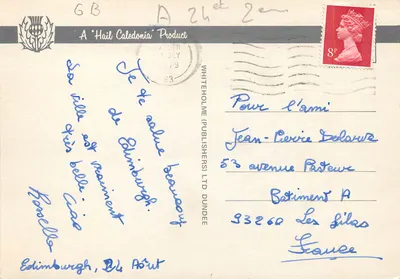 GB
A 24et 2em
A "Hail Caledonia" Product
8P
Je te salue beaucoup
de Edimburgh.
La ville est vraiment
très belle Ciao
Rossella
Edimburgh, 24 Août
WHITEHOLME (PUBLISHERS) LTD DUNDEE
Pour l'ami
Jean-Pierre Delarue
53 avenue Pasteur
Batiment A
93260 Les Lilas
France